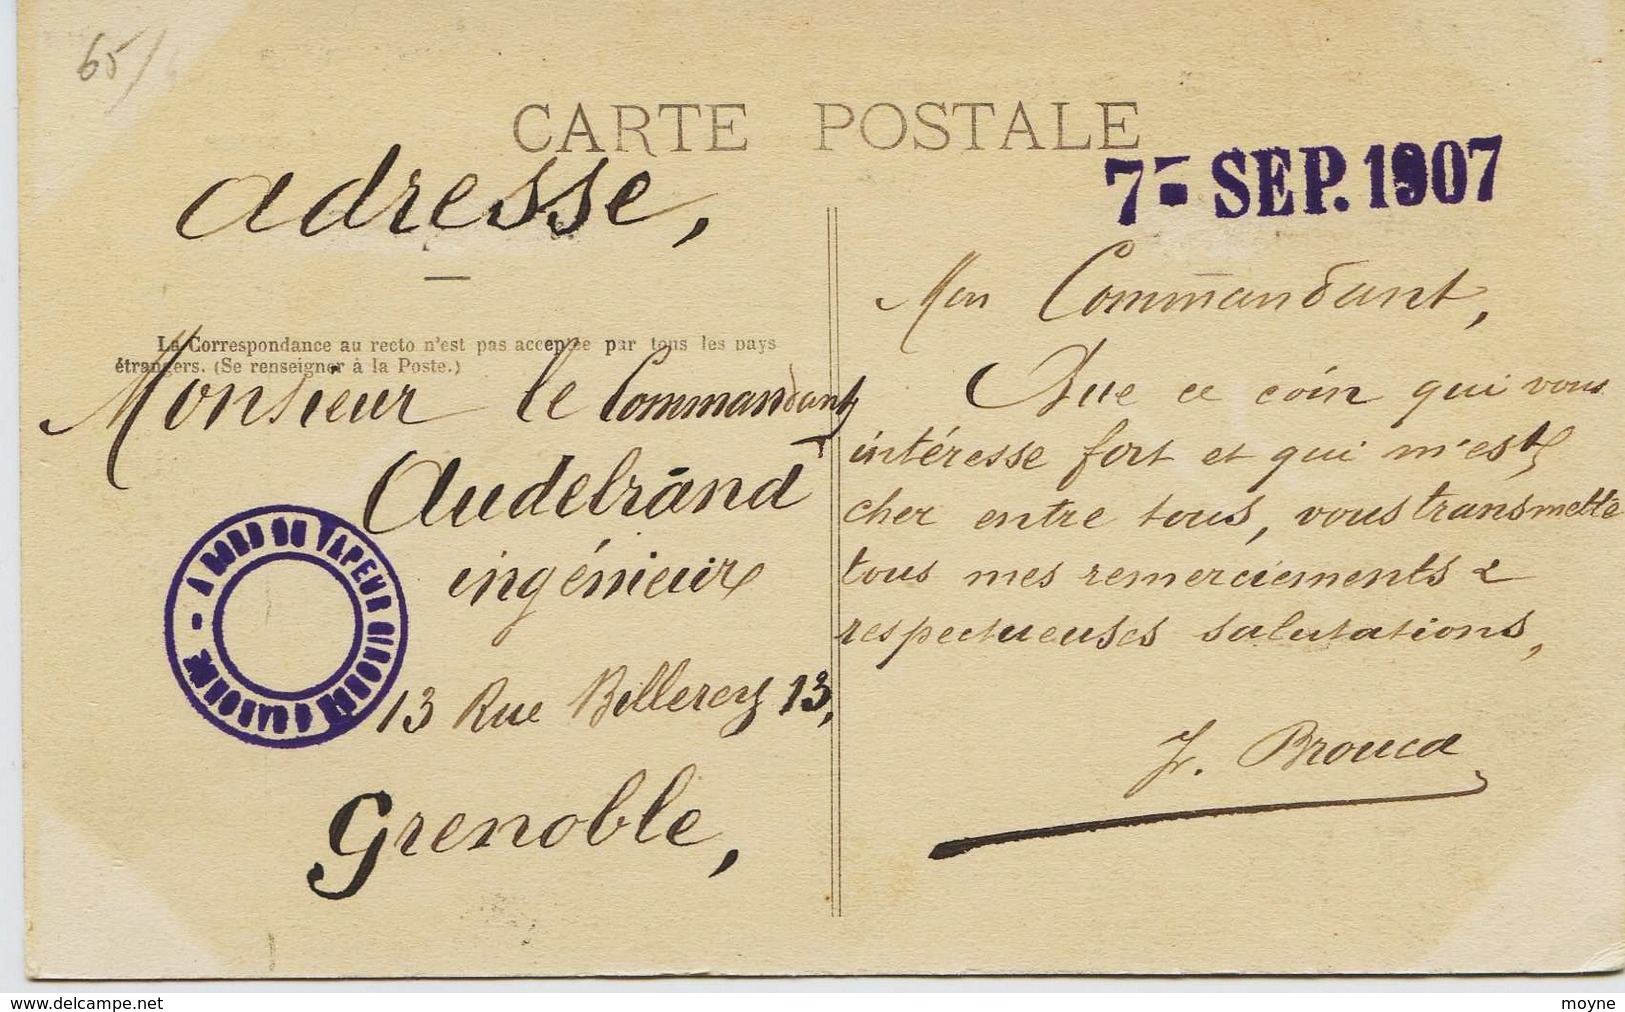 65/
CARTE POSTALE
adresse,
7- SEP. 1907
La Correspondance au recto n'est pas acceptée par tous les pays
étrangers. (Se renseigner à la Poste.)
Monsieur le Commandant
Audebrand
ingénieur
13 Rue Billerey 13,
Grenoble,
A BORD DU VAPEUR GIRONDE
Mon Commandant,
Que ce coin qui vous
intéresse fort et qui m'est
cher entre tous, vous transmette
tous mes remerciements &
respectueuses salutations,
J. Brouca
delcampe.net
moyne